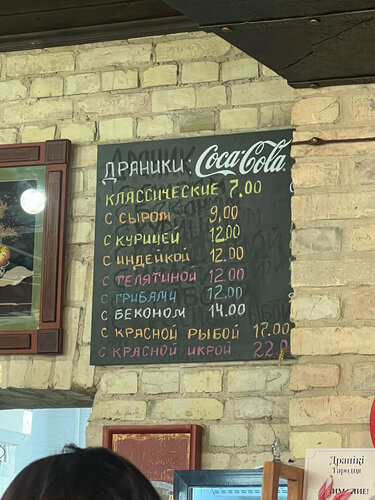 ДРАНИКИ: Coca-Cola
КЛАССИЧЕСКИЕ 7.00
С СЫРОМ 9,00
С КУРИЦЕЙ 12.00
С ИНДЕЙКОЙ 12.00
С ТЕЛЯТИНОЙ 12.00
С ГРИБАМИ 12.00
С БЕКОНОМ 14.00
С КРАСНОЙ РЫБОЙ 17.00
С КРАСНОЙ ИКРОЙ 22.0
Дранікі